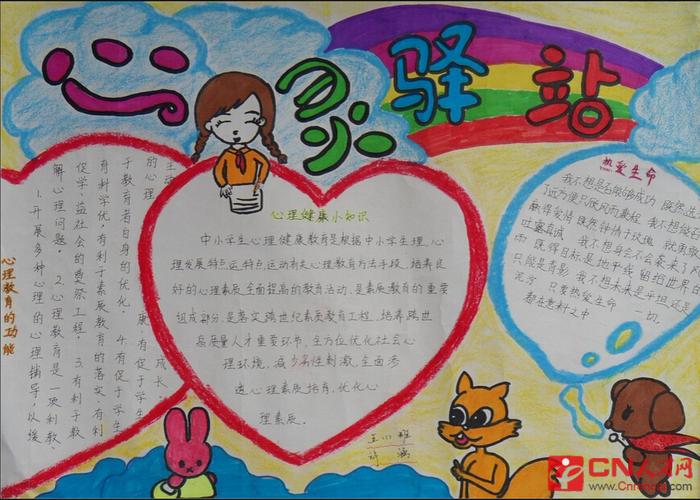 心灵驿站
心理教育的功能
1.开展多种心理的心理辅导,以缓
解心理问题。 2.心理教育是一项利教、
促学、益社会的奠祭工程。 3.有利于教
育科学优,有利于素质教育的落实,有利
于教育者自身的优化。 4.有促于学生
的心理
康,有促于学生
成长。
心理健康小知识
中小学生心理健康教育是根据中小学生理,心
理发展特点,运特点,运动有关心理教育方法手段,培养良
好的心理素质,全面提高的教育活动,是素质教育的重要
组成部分,是落实跨世纪素质教育工程,培养跨世
高质量人才重要环节,全方位优化社会心
理环境,减少恶性刺激,全面参
造心理素质培育,优化心
理素质.
热爱生命
我不想是否能够成功 既然选
了远方便只顾风雨兼程 我不想能否
赢得爱情 既然钟情于玫瑰 就勇敢
吐露真诚 我不想身会不会袭来了
雨 既得目标是地平线 留给世界的
只能是背影 我不想未来是平坦还是
泥泞 只要热爱生命 一切,
都在意料之中
CN人才网
www.Cnrencai.com